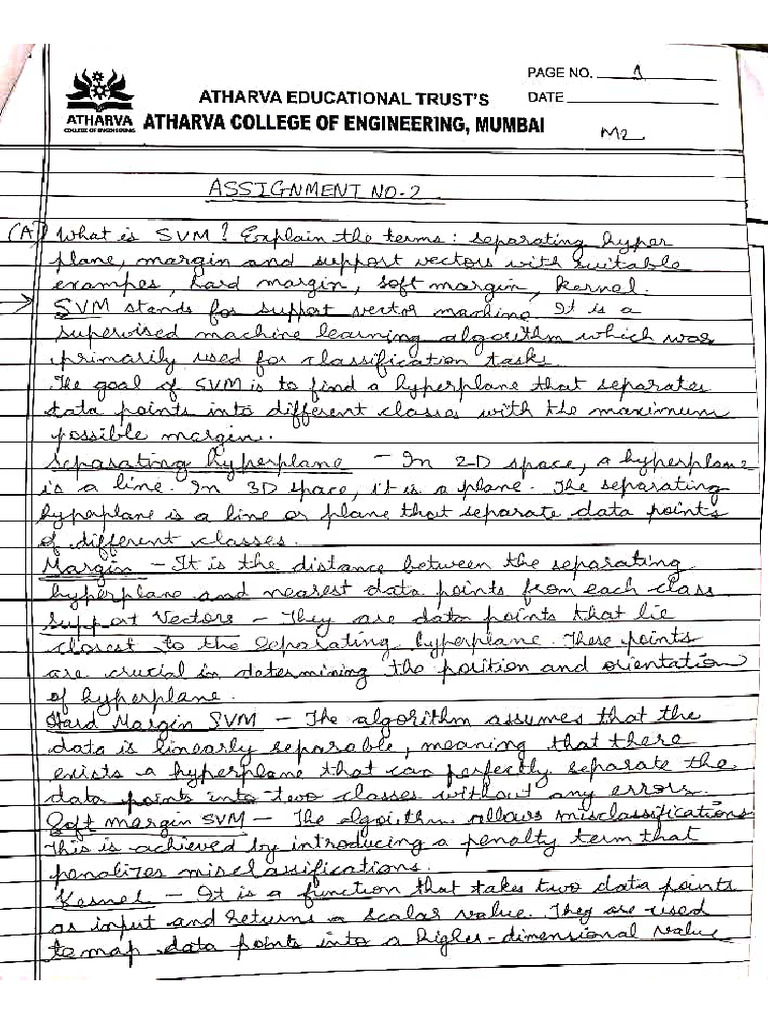 PAGE NO. 1
ATHARVA EDUCATIONAL TRUST'S
DATE
ATHARVA
COLLEGE OF ENGINEERING
ATHARVA COLLEGE OF ENGINEERING, MUMBAI
M2
ASSIGNMENT NO-2
(A) What is SVM? Explain the terms: separating hyper
plane, margin and support vectors with suitable
exampes, hard margin, soft margin, kernel.
→ SVM stands for support vector machine. It is a
supervised machine learning algorithm which was
primarily used for classification tasks.
The goal of SVM is to find a hyperplane that separates
data points into different classes with the maximum
possible margin.
Separating hyperplane - In 2-D space, a hyperplane
is a line. In 3D space, it is a plane. The separating
hyperplane is a line or plane that separate data points
of different classes.
Margin - It is the distance between the separating
hyperplane and nearest data points from each class
Support Vectors - They are data points that lie
closest to the separating hyperplane. These points
are crucial in determining the position and orientation
of hyperplane.
Hard Margin SVM - The algorithm assumes that the
data is linearly separable, meaning that there
exists a hyperplane that can perfectly separate the
data points into two classes without any errors.
Soft margin SVM - The algoithm allows misclassifications
This is achieved by introducing a penalty term that
penalizes misclassifications.
Kernel - It is a function that takes two data points
as input and returns a scalar value. They are used
to map data points into a higher-dimensional value